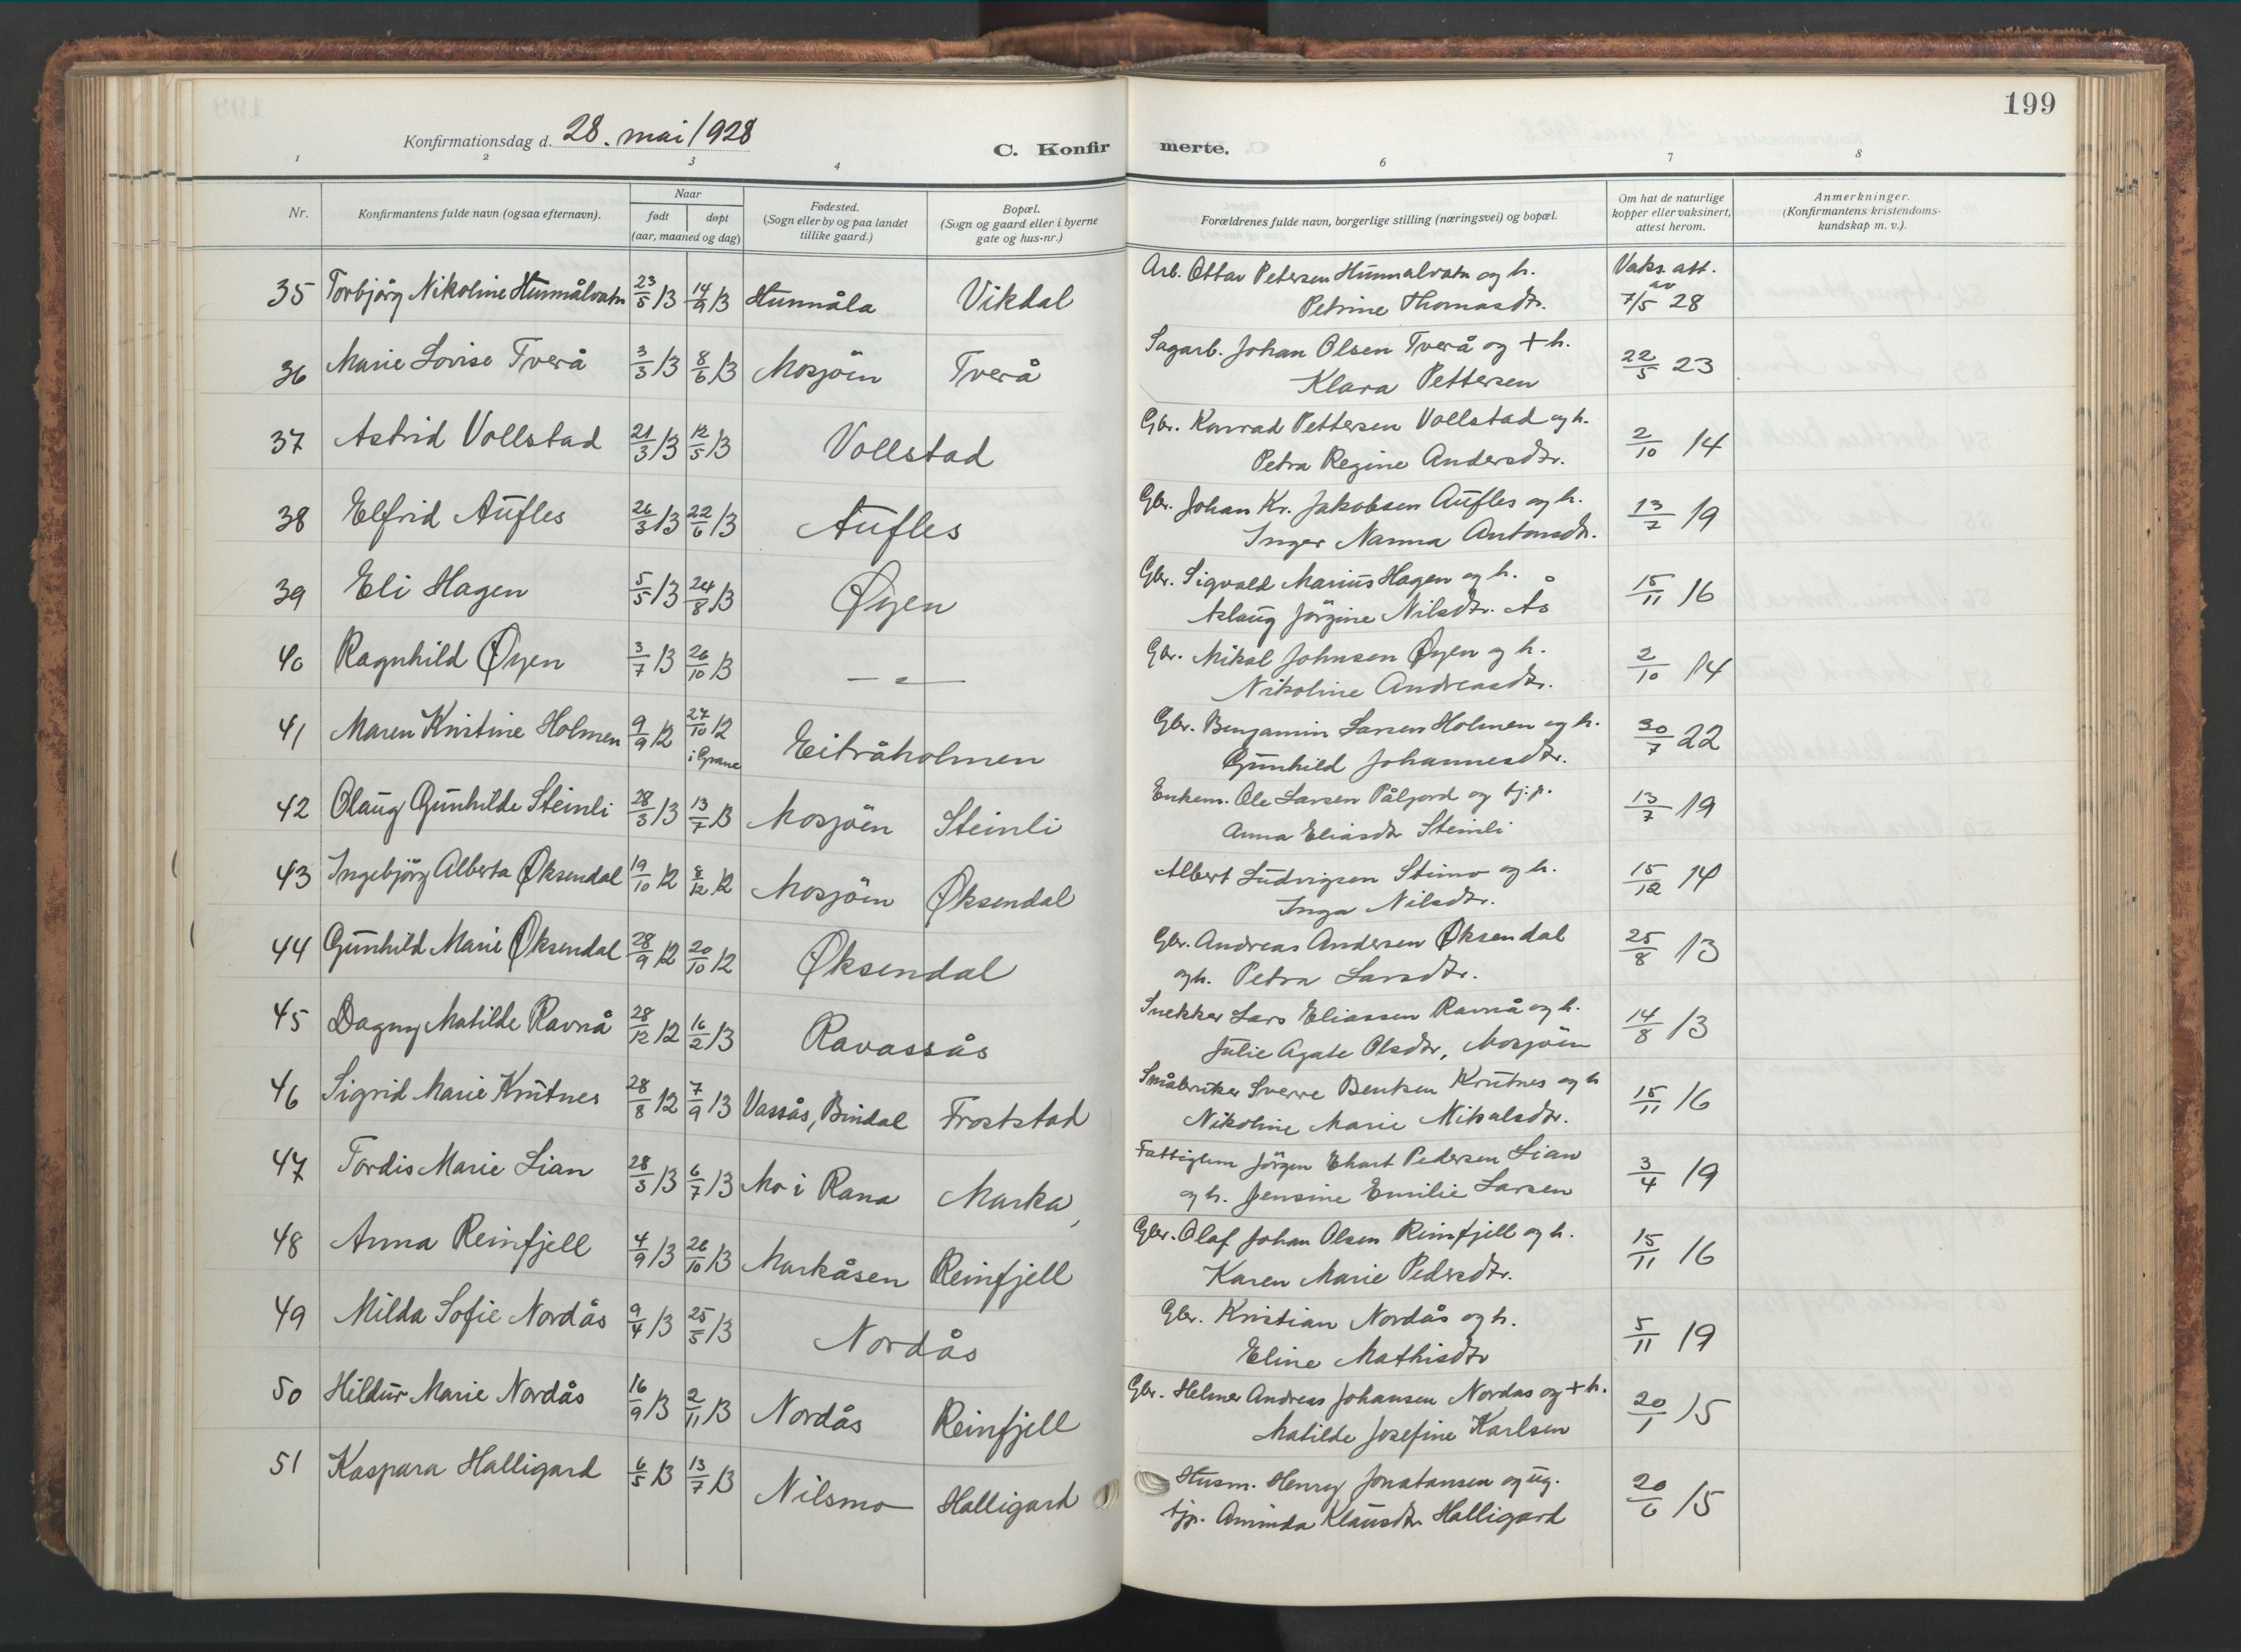 199
Konfirmationsdag d. 28. mai 1928
C. Konfirmerte.
1 2 3 4 6 7 8
Nr.
Konfirmantens fulde navn (ogsaa efternavn).
Naar
født døpt
(aar, maaned og dag)
Fødested.
(Sogn eller by og paa landet
tillike gaard.)
Bopæl.
(Sogn og gaard eller i byerne
gate og hus-nr.)
Forældrenes fulde navn, borgerlige stilling (næringsvei) og bopæl.
Om hat de naturlige
kopper eller vaksinert,
attest herom.
Anmerkninger.
(Konfirmantens kristendoms-
kundskap m. v.).
35 Torbjörg Nikoline Hunnålvatn 23/5 13 14/9 13 Hunnåla Vikdal
Arb. Ottar Petersen Hunnalvatn og h.
Petrine Thomasdtr.
Vaks. att.
av
7/5 28
36 Marie Lovise Tverå 3/3 13 8/6 13 Mosjöen Tverå
Sagarb. Johan Olsen Tverå og + h.
Klara Pettersen
22/5 23
37 Astrid Vollstad 21/3 13 12/5 13 Vollstad
Gbr. Konrad Pettersen Vollstad og h.
Petra Regine Andersdtr.
2/10 14
38 Elfrid Aufles 26/3 13 22/6 13 Aufles
Gbr. Johan Kr. Jakobsen Aufles og h.
Inger Nanna Antonsdtr.
13/7 19
39 Eli Hagen 5/5 13 24/8 13 Øyen
Gbr. Sigvald Marius Hagen og h.
Aslaug Jörgine Nilsdtr. Ås
15/11 16
40 Ragnhild Øyen 3/7 13 26/10 13 — " —
Gbr. Mikal Johnsen Øyen og h.
Nikoline Andreasdtr.
2/10 14
41 Maren Kristine Holmen 9/9 12 27/10 12 i Grane Eitråholmen
Gbr. Benjamin Larsen Holmen og h.
Gunhild Johannesdtr.
30/7 22
42 Olaug Gunhilde Steinli 28/3 13 13/7 13 Mosjöen Steinli
Enkem. Ole Larsen Påljord og tj.p.
Anna Eliasdtr Steinli
13/7 19
43 Ingebjörg Alberta Øksendal 19/10 12 8/12 12 Mosjöen Øksendal
Albert Ludvigsen Stimo og h.
Inga Nilsdtr.
15/12 14
44 Gunhild Marie Øksendal 28/9 12 20/10 12 Øksendal
Gbr. Andreas Andersen Øksendal
og h. Petra Larsdtr.
25/8 13
45 Dagny Matilde Ravnå 28/12 12 16/2 13 Ravassås
Snekker Lars Eliassen Ravnå og h.
Julie Agate Olsdtr, Mosjöen
14/8 13
46 Sigrid Marie Krutnes 28/8 12 7/9 13 Vassås, Bindal Froststad
Småbruker Sverre Bentsen Krutnes og h
Nikoline Marie Mikalsdtr.
15/11 16
47 Tordis Marie Lian 28/3 13 6/7 13 Mo i Rana Marka
Fattiglem Jörgen Ehart Pedersen Lian
og h. Jensine Emilie Larsen
3/4 19
48 Anna Reinfjell 4/9 13 26/10 13 Markåsen Reinfjell
Gbr. Olaf Johan Olsen Reinfjell og h.
Karen Marie Pedrsdtr.
15/11 16
49 Milda Sofie Nordås 9/4 13 25/5 13 Nordås
Gbr. Kristian Nordås og h.
Eline Mathisdtr
5/11 19
50 Hildur Marie Nordås 16/9 13 2/11 13 Nordås Reinfjell
Gbr. Helmer Andreas Johansen Nordas og + h.
Matilde Josefine Karlsen
20/1 15
51 Kaspara Halligard 6/5 13 13/7 13 Nilsmo Halligard
Husm. Henry Jonatansen og ug.
tjp. Aminda Klausdtr. Halligard
20/6 15